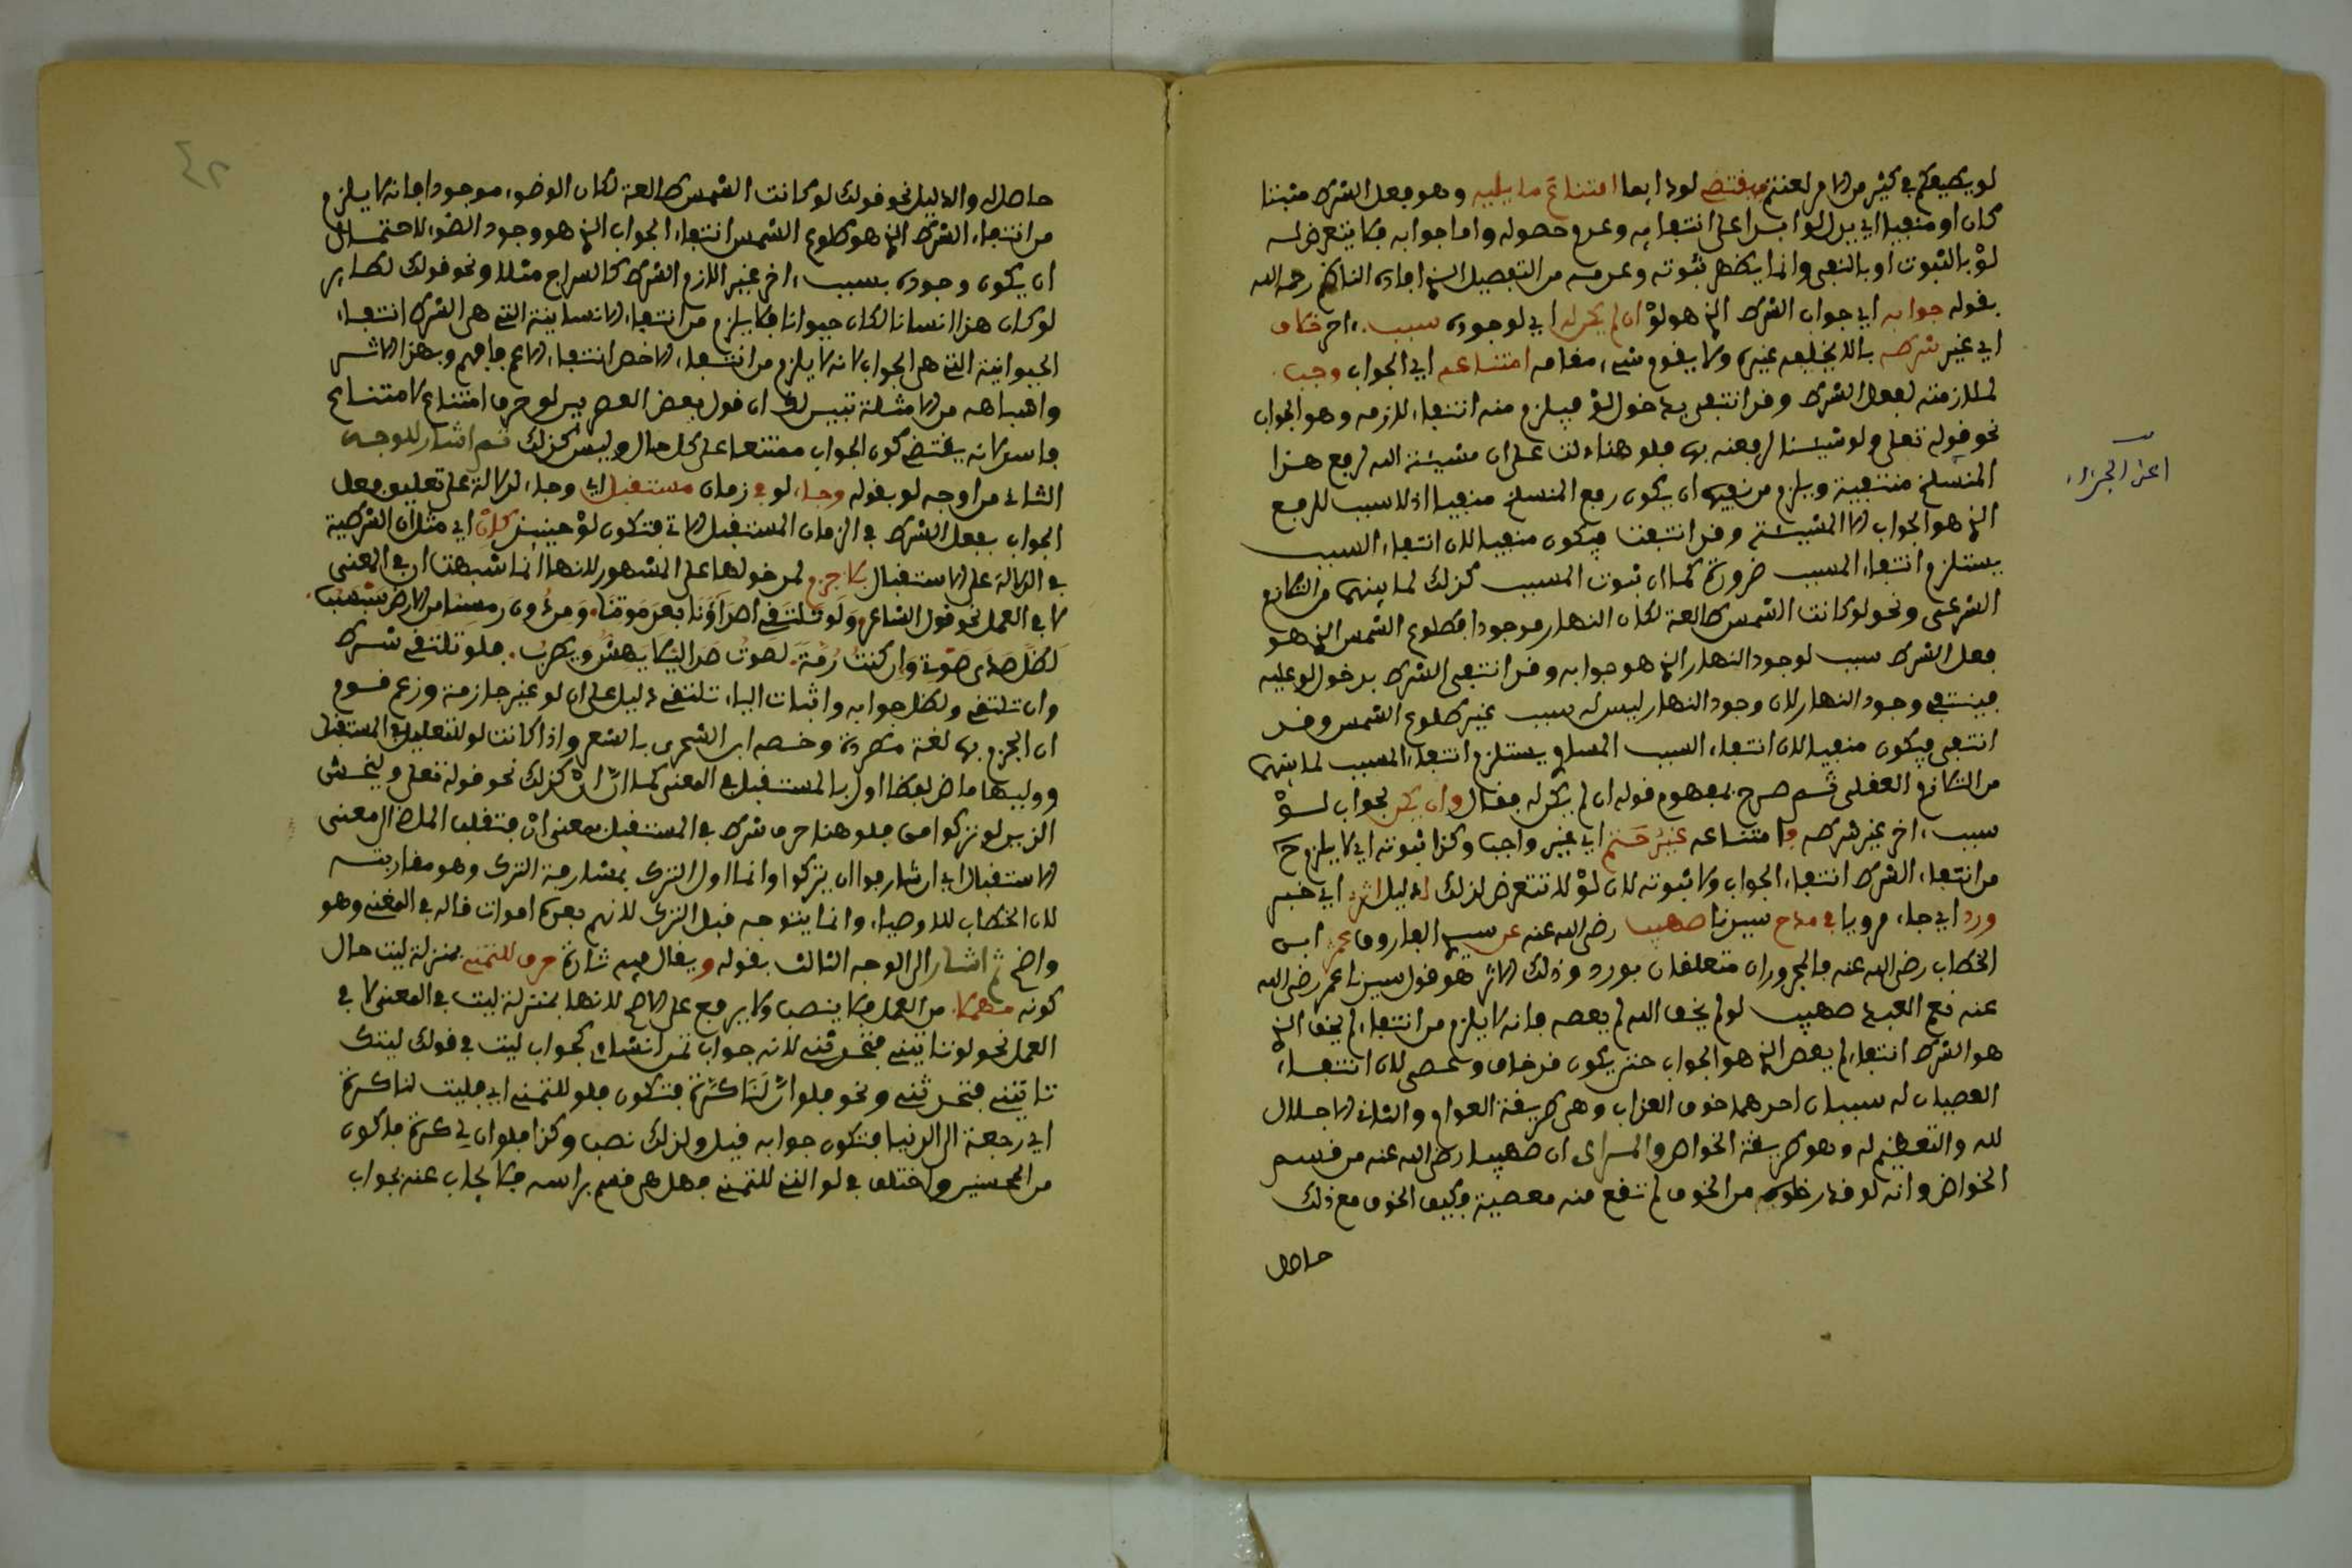 لو يطيعكم في كثير من الامر لعنتم فيقتضي لو دايما امتناع ما يليه وهو فعل الشرط مثبتا
كان او منفيا اي يدل لو ابدا على انتفايه وعدم حصوله واما جوابه فلا يتعرض له
لو بالثبوت او بالنفي وانما يظهر ثبوته وعدمه من التفصيل الذي افاده الناظم رحمه الله
بقوله جوابه اي جواب الشرط الذي هو لو ان لم يكن له اي لوجوده سبب ءاخر خلاف
اي غير شرطه بالا يخلفه غيره ولا يقوم شيء مقامه امتناعه اي الجواب وجب
لملازمته لفعل الشرط وقد انتفى بدخول لو فيلزم منه انتفاء لازمه وهو الجواب
نحو قوله تعلى ولو شيئنا لرفعنه بها فلو هنا دلت على ان مشيئة الله لرفع هذا
المنسلخ منتفية ويلزم من نفيها ان يكون رفع المنسلخ منفيا اذ لا سبب للرفع
الذي هو الجواب الا المشيئة وقد انتفت فيكون منفيا لان انتفاء السبب
يستلزم انتفاء المسبب ضرورة كما ان ثبوت المسبب كذلك لما بينهما من التلازم
الشرعي ونحو لو كانت الشمس طالعة لكان النهار موجودا فطلوع الشمس الذي هو
فعل الشرط سبب لوجود النهار الذي هو جوابه وقد انتفى الشرط بدخول لو عليه
فينتفي وجود النهار لان وجود النهار ليس له سبب غير طلوع الشمس وقد
انتفى فيكون منفيا لان انتفاء السبب المساوي يستلزم انتفاء المسبب لما بينهما
من التلازم العقلي ثم صرح بمفهوم قوله ان لم يكن له فقال وان يكن لجواب لو
سبب ءاخر غير شرطه فامتناعه غير حتم اي غير واجب وكذا ثبوته اي لا يلزم ح
من انتفاء الشرط انتفاء الجواب ولا ثبوته لان لو لا تتعرض لذلك لدليل اثر اي خبر
ورد اي جاء مرويا في مدح سيدنا صهيب رضي الله عنه عن سيدي الفاروق عمر ابن
الخطاب رضي الله عنه فالمجروران متعلقان بورد وذلك الاثر هو قول سيدنا عمر رضي الله
عنه نعم العبد صهيب لو لم يخف الله لم يعصه فانه لا يلزم من انتفاء لم يخف الذي
هو الشرط انتفاء لم يعص الذي هو الجواب حتى يكون قد خاف وعصى لان انتفاء
العصيان له سببان احدهما خوف العذاب وهي طريقة العوام والثاني الاجلال
لله والتعظيم له وهو طريقة الخواص والمراد ان صهيبا رضي الله عنه من قسم
الخواص وانه لو قدر خلوه من الخوف لم تقع منه معصية فكيف الخوف مع ذلك
حاصل
اعني الجزاء
حاصل له والدليل نحو قولك لو كانت الشمس طالعة لكان الوضوء موجودا فانه لا يلزم
من انتفاء الشرط الذي هو طلوع الشمس انتفاء الجواب الذي هو وجود الضوء لاحتمال
ان يكون وجوده بسبب ءاخر غير اللازم الشرط كالسراج مثلا ونحو قولك لطاير
لو كان هذا انسانا لكان حيوانا فلا يلزم من انتفاء الانسانية التي هي الشرط انتفاء
الحيوانية التي هي الجواب لانه لا يلزم من انتفاء الاخص انتفاء الاعم فافهم وبهذا الاثر
واشباهه من الامثلة تبين لك ان قول بعض المعربين لو حرف امتناع لامتناع
فاسد لانه يقتضي كون الجواب ممتنعا على كل حال وليس كذلك ثم اشار للوجه
الثاني من اوجه لو بقوله وجاء لو في زمان مستقبل اي وجاء للدلالة على تعليق فعل
الجواب بفعل الشرط في الزمان المستقبل الاتي فتكون لو حينئذ كان اي مثل ان الشرطية
في الدلالة على الاستقبال بلا جزم لمدخولها على المشهور لانها انما شبهت ان في المعنى
لا في العمل نحو قول الشاعر ولو تلتقي اصداؤنا بعد موتنا ومن دون رمسينا من الارض سبسب
لظل صدى صوتي وان كنت رمة لصوت صدى ليلى يهش ويطرب فلو تلتقي شرط
وان تلتقي ولظل جوابه واثبات الياء تلتقي دليل على ان لو غير جازمة وزعم قوم
ان الجزم بها لغة مطردة وخصه ابن الشجري بالشعر واذا كانت لو للتعليق في المستقبل
ووليها ماض لفظا اول بالمستقبل في المعنى كما ان ان كذلك نحو قوله تعلى وليخش
الذين لو تركوا من فلو هنا حرف شرط في المستقبل بمعنى ان فتقلب الماضي الى معنى
الاستقبال اي ان شارفوا ان يتركوا وانما اول الترك بمشارفة الترك وهو مقاربته
لان الخطاب للاوصياء وانما يتوجه قبل الترك لانهم بعده اموات قاله في المغني وهو
واضح ثم اشار الى الوجه الثالث بقوله ويقال فيه تارة حرف للتمني بمنزلة ليت حال
كونه مهملا من العمل فلا ينصب ولا يرفع على الاصح لانها بمنزلة ليت في المعنى لا في
العمل نحو لو تاتيني فتحدثني لانه جواب تمن انشاءي كجواب ليت في قولك ليتك
تاتيني فتحدثني ونحو فلو ان لنا كرة فتكون فلو للتمني اي فليت لنا كرة
اي رجعة الى الدنيا فتكون جوابه قيل ولذلك نصب وكذا فلو ان لي كرة فاكون
من المحسنين واختلف في لو التي للتمني فهل هي قسم براسه فلا يجاب عنه بجواب
٤٢